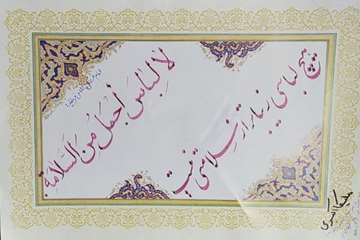 لا لِباسَ أجمَلُ مِنَ السَّلامَةِ
هیچ لباسی زیباتر از سلامتی نیست